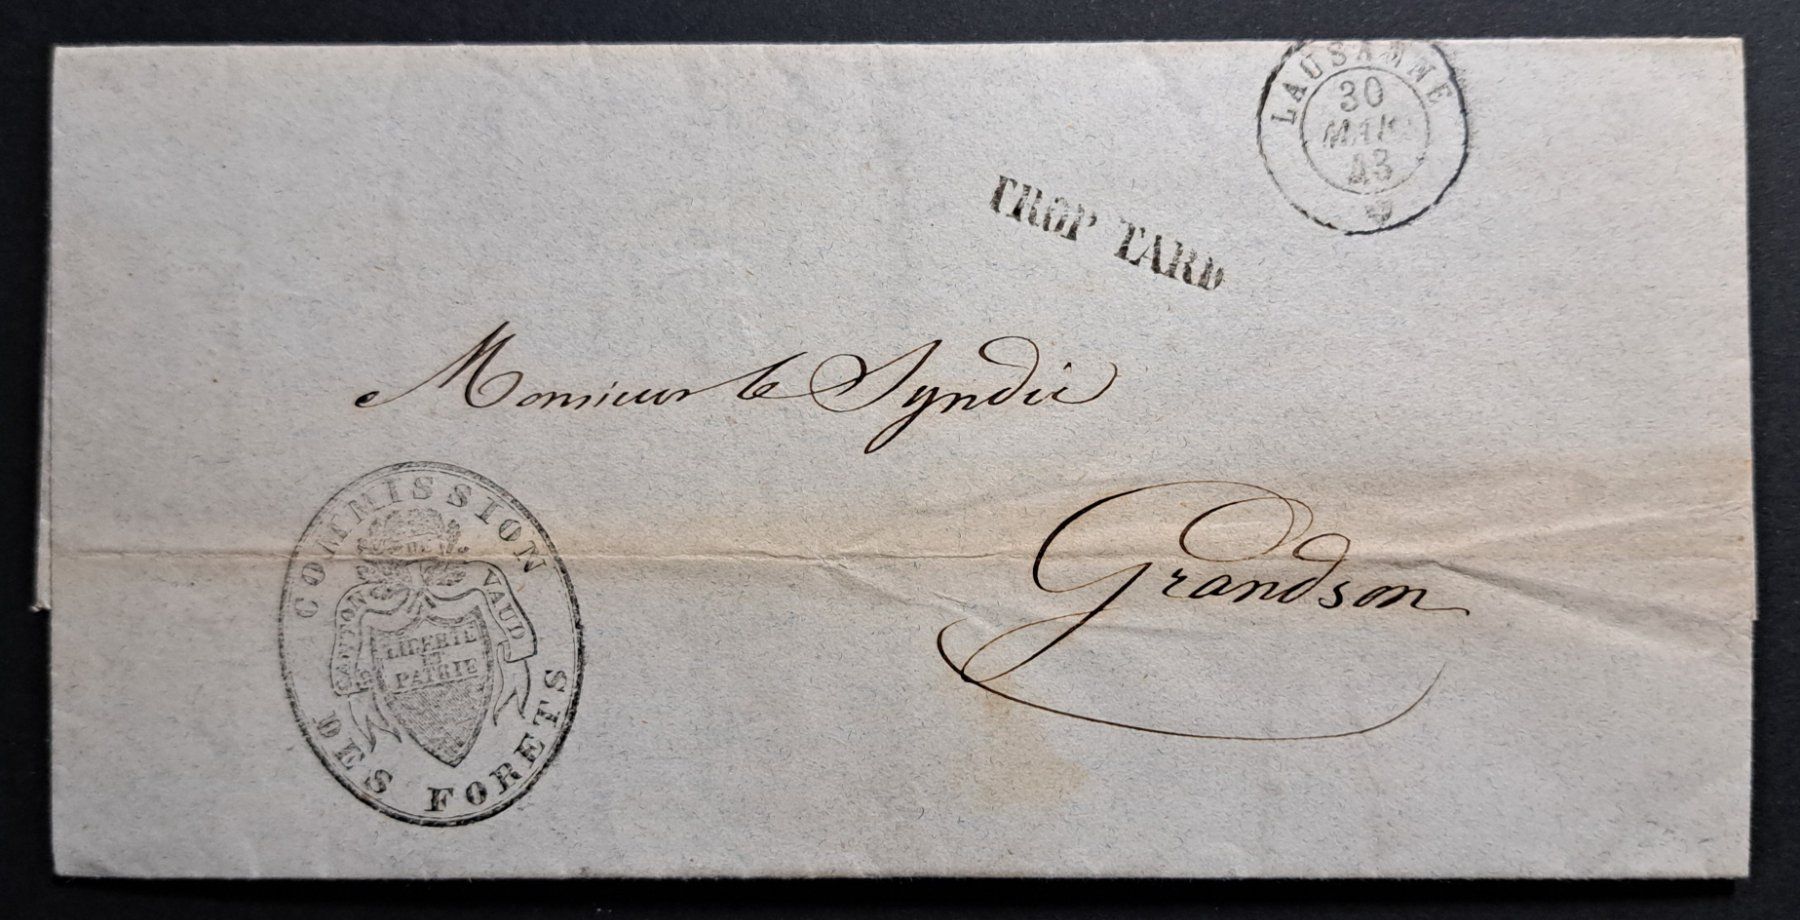 LAUSANNE
30
MARS
43
TROP TARD
Monsieur le Syndic
Grandson
COMMISSION
CANTON DE VAUD
LIBERTÉ
ET
PATRIE
DES FORETS